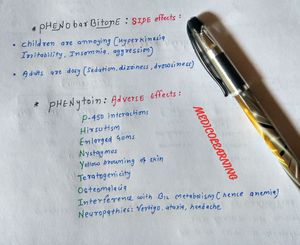 * PHENobarBitonE : SIDE effects :
• Children are annoying (Hyperkinesia
Irritability, Insomnia, aggression)
• Adults are dosy (Sedation, dizziness, drowsiness)
* PHENytoin : Adverse Effects :
P-450 interactions
Hirsutism
Enlarged Gums
Nystagmus
Yellow browning of skin
Teratogenicity
Osteomalacia
Interference with B12 metabolism (hence anemia)
Neuropathies : Vertigo, ataxia, headache
MEDICOZLEARNING